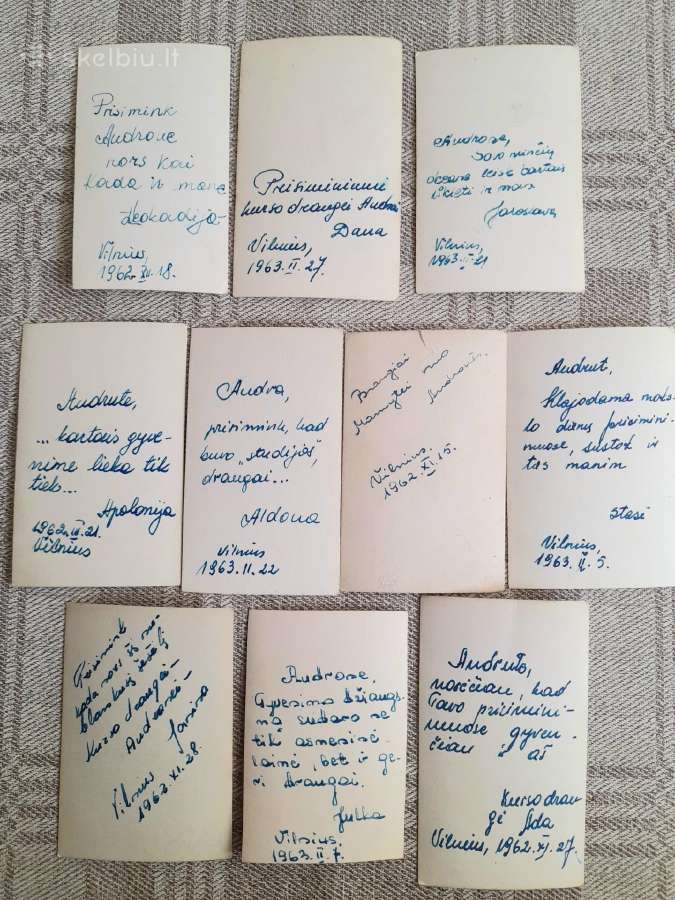 skelbiu.lt
Prisimink
Androne
nors kai
kada ir mane
Leokadija
Vilnius,
1962.XII.18.
Prisiminimui
kurso draugei Andrai
Dana
Vilnius,
1963.II.27.
Androse,
savo minčių
oceane leisk kartais
ir man
Jaroslava
Vilnius,
1963.II.21
Andrute,
... kartais gyve-
nime lieka tik
tiek...
Apolonija
1962.XI.21.
Vilnius
Andra,
prisimink, kad
buvo „studijos",
draugai...
Aldona
Vilnius
1963.11.22
Brangiai
Mamytei nuo
Andronės.
Vilnius.
1962.XI.15.
Andrut,
Klajodama moks-
lo dienų prisimini-
muose, sustok ir
ties manim
Stasė
Vilnius,
1963.II.5.
Prisimink
kada nors šį ne-
blankųjį šešėlį
Kurso draugei
Andronei-
Janina
Vilnius
1962.XI.28.
Androne,
Gyvenimo džiaugs-
mą sudaro ne
tik asmeninė
laimė, bet ir ge-
ri draugai.
Julka
Vilnius.
1963.II.7.
Andrute,
norėčiau, kad
Tavo prisimini-
muose gyven-
čiau ir aš
Kurso drau-
gė Ada
Vilnius, 1962.XI.27.